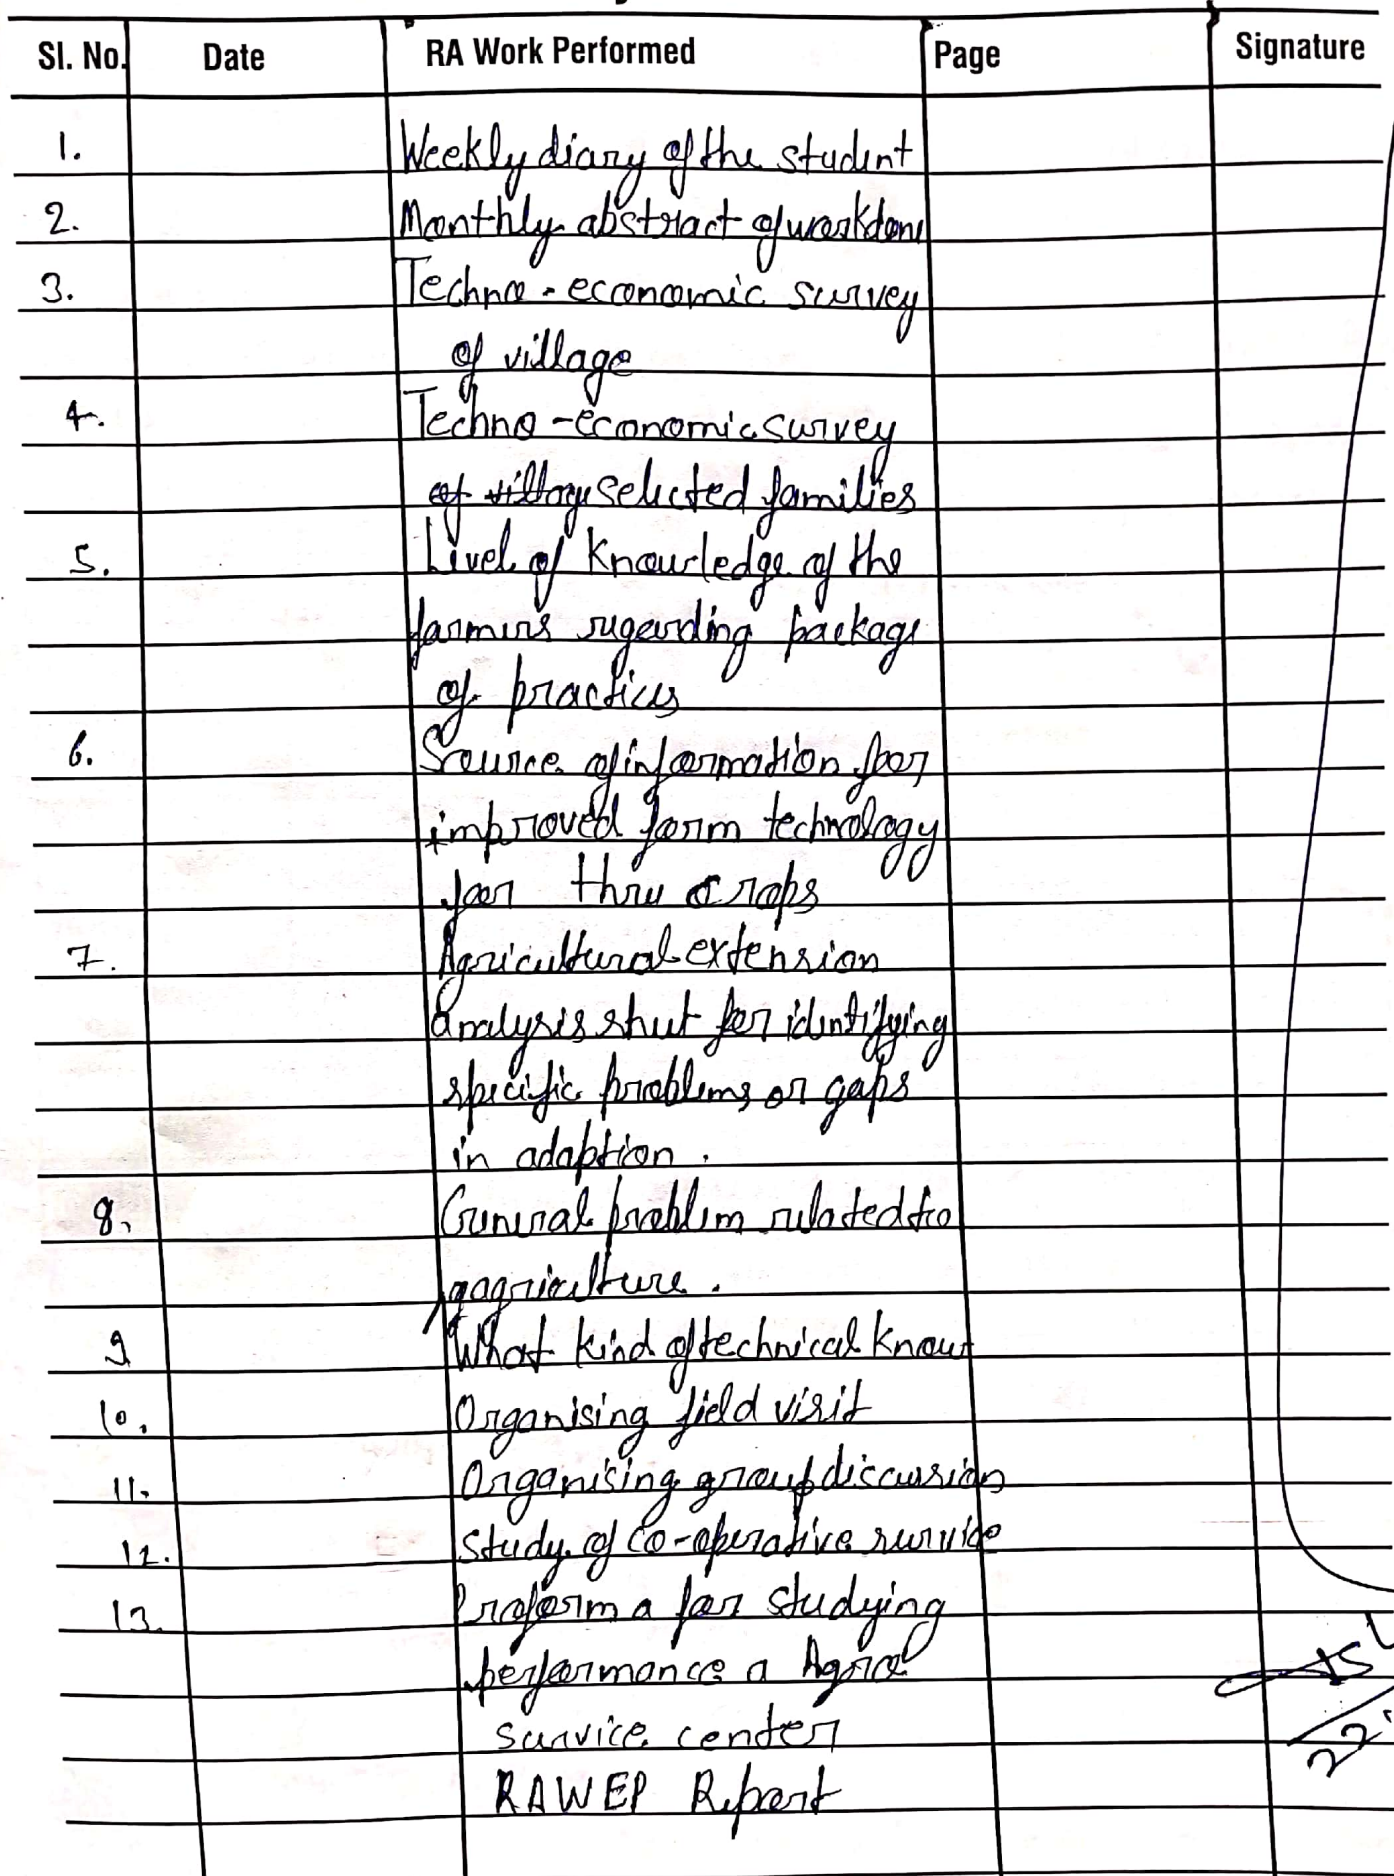 Sl. No. Date RA Work Performed Page Signature
1. Weekly diary of the student
2. Monthly abstract of workdone
3. Techno-economic survey
of village
4. Techno-economic survey
of village selected families
5. Level of Knowledge of the
farmers regarding package
of practices
6. Source of information for
improved farm technology
for three crops
7. Agricultural extension
analysis sheet for identifying
specific problems or gaps
in adaption.
8. General problem related to
agriculture.
9 What kind of technical know
10. Organising field visit
11. Organising group discussion
12. Study of co-operative service
13. Proforma for studying
performance a Agro
service center
RAWEP Report